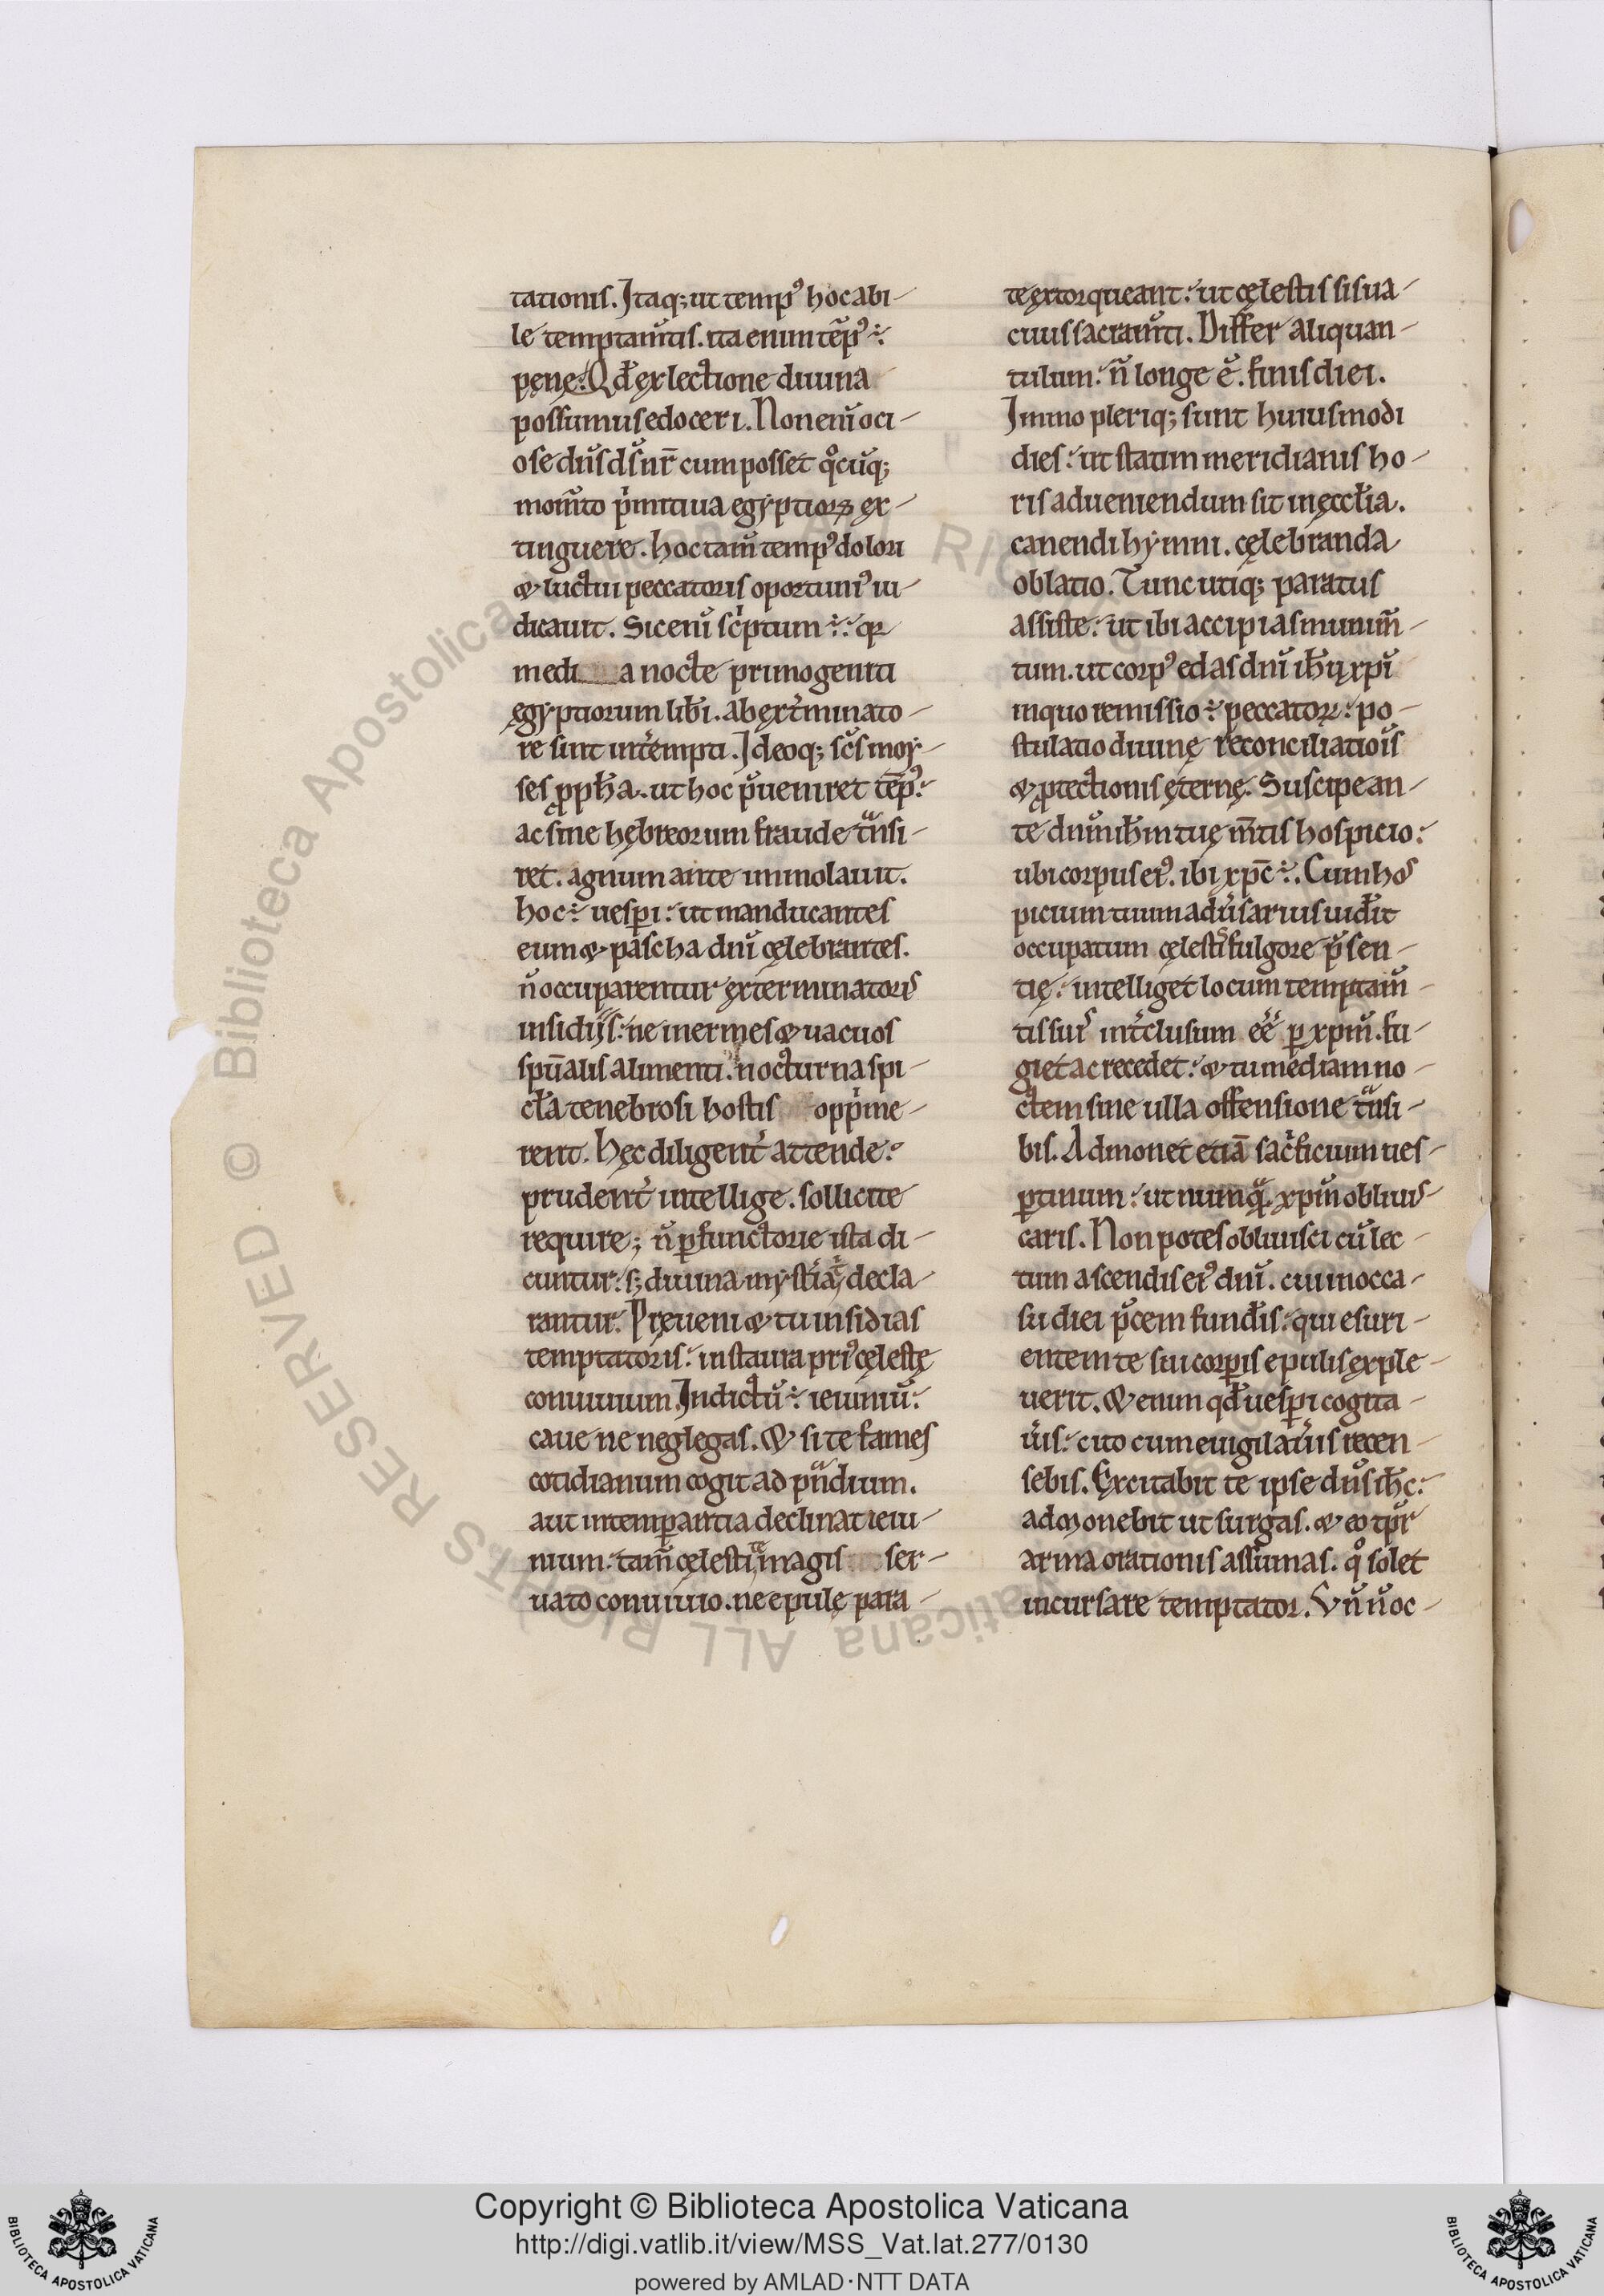 tationis. Itaq; ut temp᾽ hoc abi-
le temptam̄tis. ita enim tēp᾽ ÷
pęnę. Qđ ęx lectione diuina
possumus edoceri. Non enī oci-
ose dn̄s ds̄ nr̄ cum posset qͦcūq;
mom̄to pⁱmitiua egyptioꝝ ęx-
tinguere. hoc tam̄ temp᾽ dolori
& luctui peccatoris oportuni᾽ iu-
dicauit. Sic enī scⁱptum ÷. qꝛ
medi a nocte primogenita
ęgyptiorum lib̄i. ab ęxt̄minato-
re sint int̄empti. Ideoq; sc̄s moy-
ses ꝓph̄a. ut hoc p̄ueniret tēp᾽.
ac sine hębreorum fraude tᵃnsi-
ret. agnum ante immolauit.
hoc ÷ uesp̱i. ut manducantes
eum & pascha dn̄i cęlebrantes.
n̄ occuparentur ęxterminatoris
insidiis. ne inermes & uacuos
spūalis alimenti. nocturna spi-
cl̄a tenebrosi hostis oppⁱme-
rent. Hęc diligent̄ attende.
prudent̄ intellige. sollicite
require; n̄ ꝑfunctorie ista di-
cuntur. s; diuina mystia decla-
rantur. Pręueni & tu insidias
temptatoris. instaura pri᾽ cęlestę
conuiuium. Indictū ÷ ieiuniū.
caue ne neglegas. & si te fames
cotidianum cogit ad pᵃndium.
aut intemꝑantia declinat ieiu-
nium. tam̄ cęlesti te magis ser-
uato conuiuio. ne epulę para-
te ęxtorqueant. ut cęlestis sis ua-
cuus sacram̄ti. Differ aliquan-
tulum. n̄ longe ē. finis diei.
Immo pleriq; sunt huiusmodi
dies. ut statim meridianis ho-
ris adueniendum sit in ęccl̄ia.
canendi hymni. cęlebranda
oblatio. Tunc utiq; paratus
assiste. ut ibi accipias munim̄-
tum. ut corp᾽ edas dn̄i ih̄u xp̄i
in quo remissio ÷ peccatoꝝ. po-
stulatio diuinę reconciliatiōis
& ꝓtectionis ęternę. Suscipe an-
te dn̄m ih̄m tuę m̄tis hospicio.
ubi corpus ei᾽. ibi xp̄c ÷. Cum hos
picium tuum adūsarius uid̄it
occupatum cęlestis fulgore p̄sen-
tię. intelliget locum temptam̄-
tis suis int̄clusum eē ꝑ xp̄m. fu-
giet ac recedet. & tu mediam no-
ctem sine ulla offensione tᵃnsi-
bis. Admonet etiā sacⁱficium ues-
ꝑtinum. ut numqᵃ. xp̄m obliuis-
caris. Non potes obliuisci cū lec-
tum ascendis ei᾽ dn̄i. cui in occa-
su diei p̄cem fund̄is. qui esuri-
entem te sui corꝑis epulis ęxple-
uerit. & enim qđ uesꝑi cogita-
ūis. cito cum euigilaūis recen-
sebis. Ęxcitabit te ipse dn̄s ih̄c.
admonebit ut surgas. & eo tp̄r
arma orationis assumas. qͦ solet
incursare temptator. Vn̄ n̄ oc-
Copyright © Biblioteca Apostolica Vaticana
http://digi.vatlib.it/view/MSS_Vat.lat.277/0130
powered by AMLAD·NTT DATA